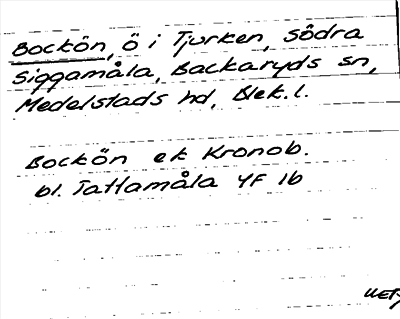 Bockön, ö i Tjurken, Södra
Siggamåla, Backaryds sn,
Medelstads hd, Blek. l.
Bockön ek Kronob.
bl. Tattamåla YF 1b